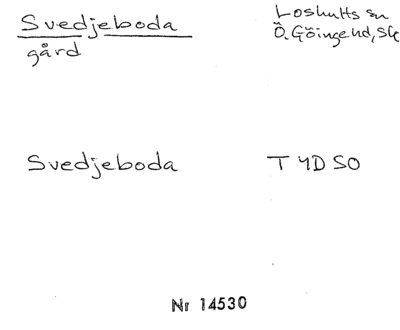 Svedjeboda
Loshults sn
gård
Ö. Göinge hd, Sk
Svedjeboda
T YD SO
Nr 14530